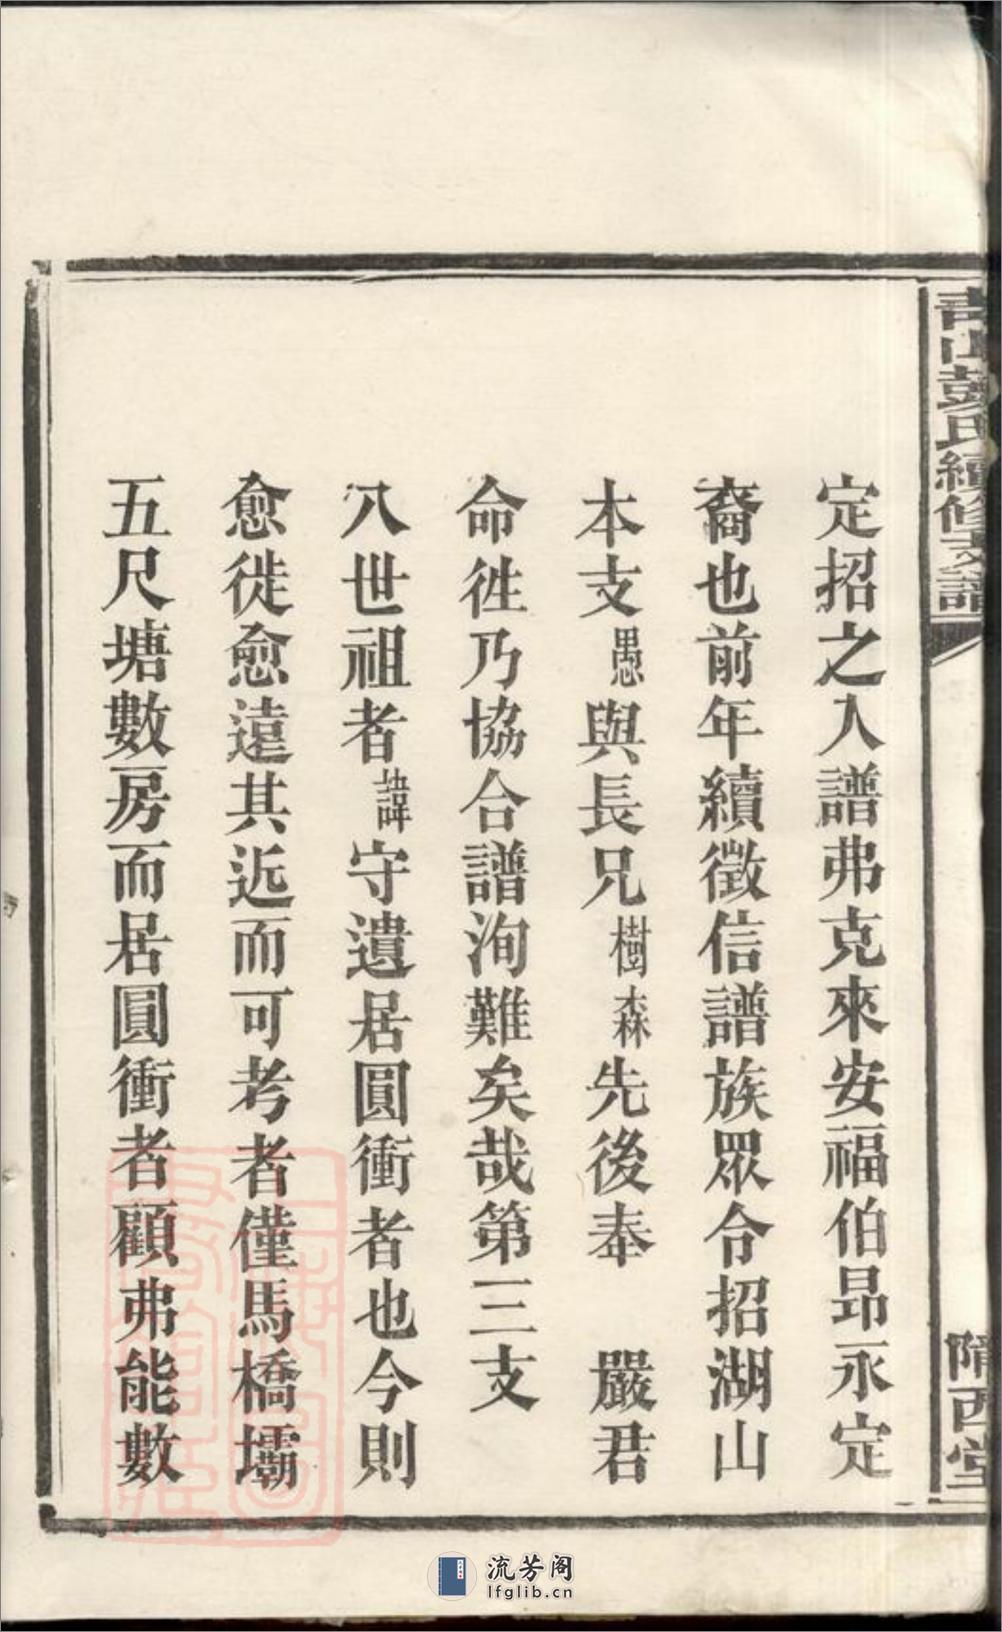 青山彭氏續修支譜
隴西堂
定招之入譜弗克來安福伯昂永定
裔也前年續徵信譜族眾令招湖山
本支愚與長兄樹森先後奉　嚴君
命徃乃協合譜洵難矣哉第三支
八世祖者諱守遺居圓衝者也今則
愈徙愈遠其近而可考者僅馬橋壩
五尺塘數房而居圓衝者顧弗能數
流芳阁
lfglib.cn